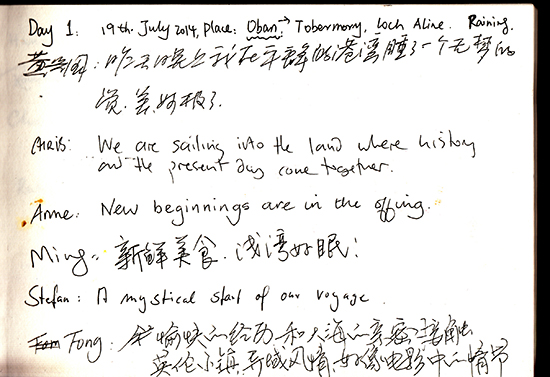 Day 1: 19th July 2014, Place: Oban → Tobermory, Loch Aline. Raining.
昨天晚上我在平静的港湾睡了一个无梦的
觉. 美好极了.
CHRIS: We are sailing into the land where history
and the present day come together.
Anne: New beginnings are in the offing.
Ming: 新鲜美食. 浅湾好眠!
Stefan: A mystical start of our voyage.
Tong: 愉快的经历和大海的亲密接触
英伦小镇, 异域风情, 如像电影中的情节